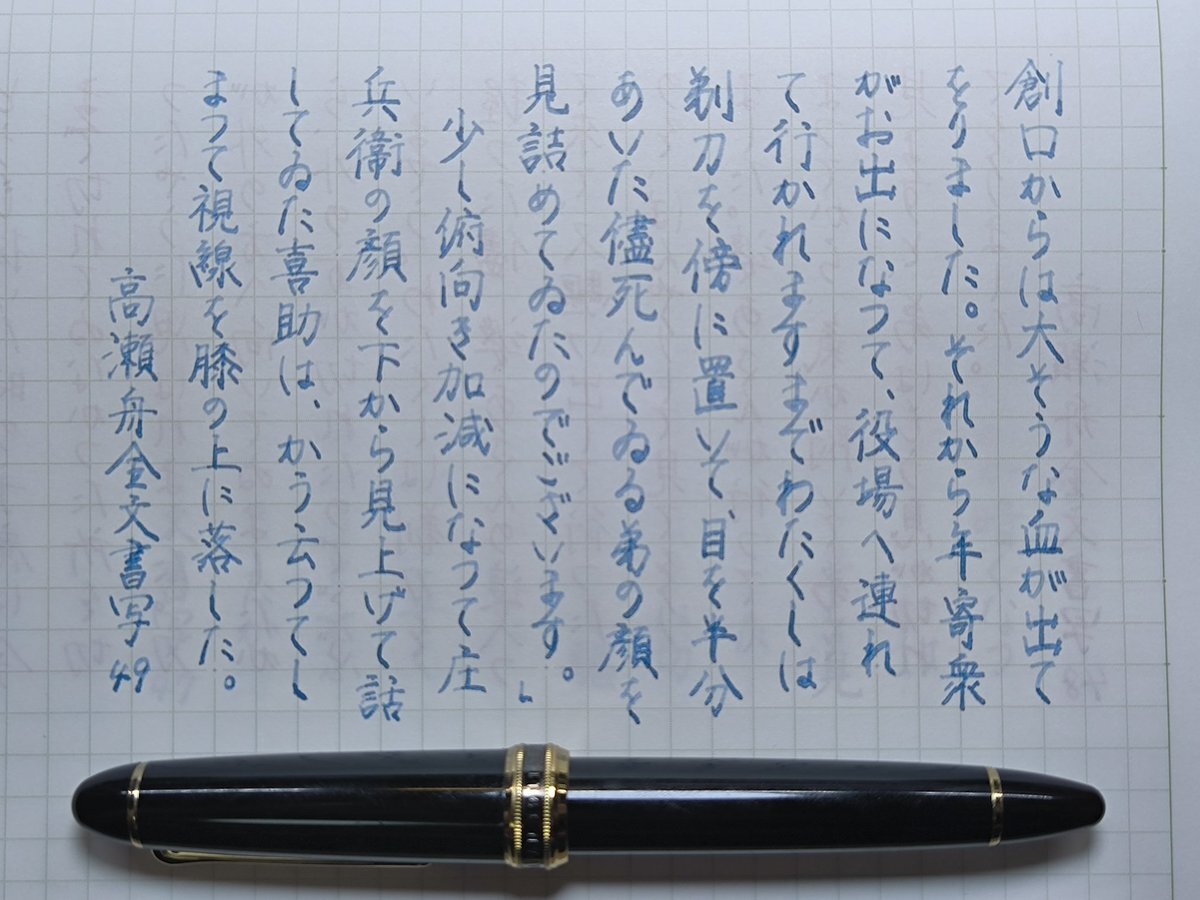 創口からは大そうな血が出て
をりました。それから年寄衆
がお出になつて、役場へ連れ
て行かれますまでわたくしは
剃刀を傍に置いて、目を半分
あいた儘死んでゐる弟の顔を
見詰めてゐたのでございます。」
少し俯向き加減になつて庄
兵衞の顔を下から見上げて話
してゐた喜助は、かう云つてし
まつて視線を膝の上に落した。
高瀬舟全文書写49